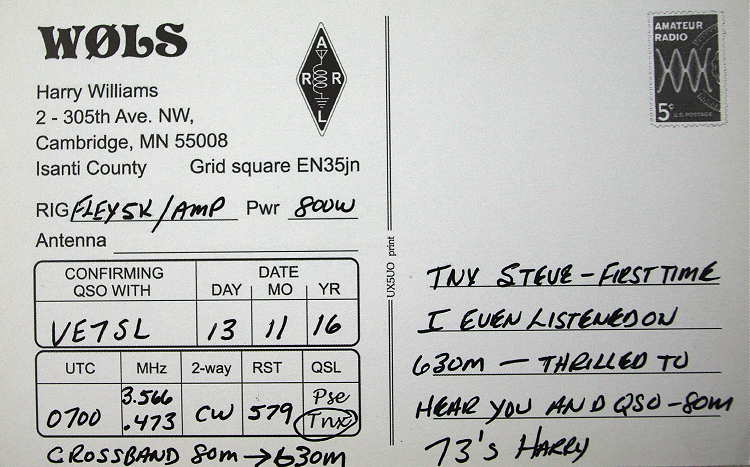 WØLS
Harry Williams
2 - 305th Ave. NW,
Cambridge, MN 55008
Isanti County Grid square EN35jn
RIG FLEY5K/AMP Pwr 800W
Antenna
A
R R
L
CONFIRMING QSO WITH DATE
DAY MO YR
VE7SL 13 11 16
UTC MHz 2-way RST QSL
0700 3.566 .473 CW 579 Pse Tnx
CROSSBAND 80M → 630M
UX5UO print
AMATEUR
RADIO
5c U.S. POSTAGE
TNX STEVE - FIRST TIME
I EVEN LISTENED ON
630M — THRILLED TO
HEAR YOU AND QSO - 80M
73's HARRY